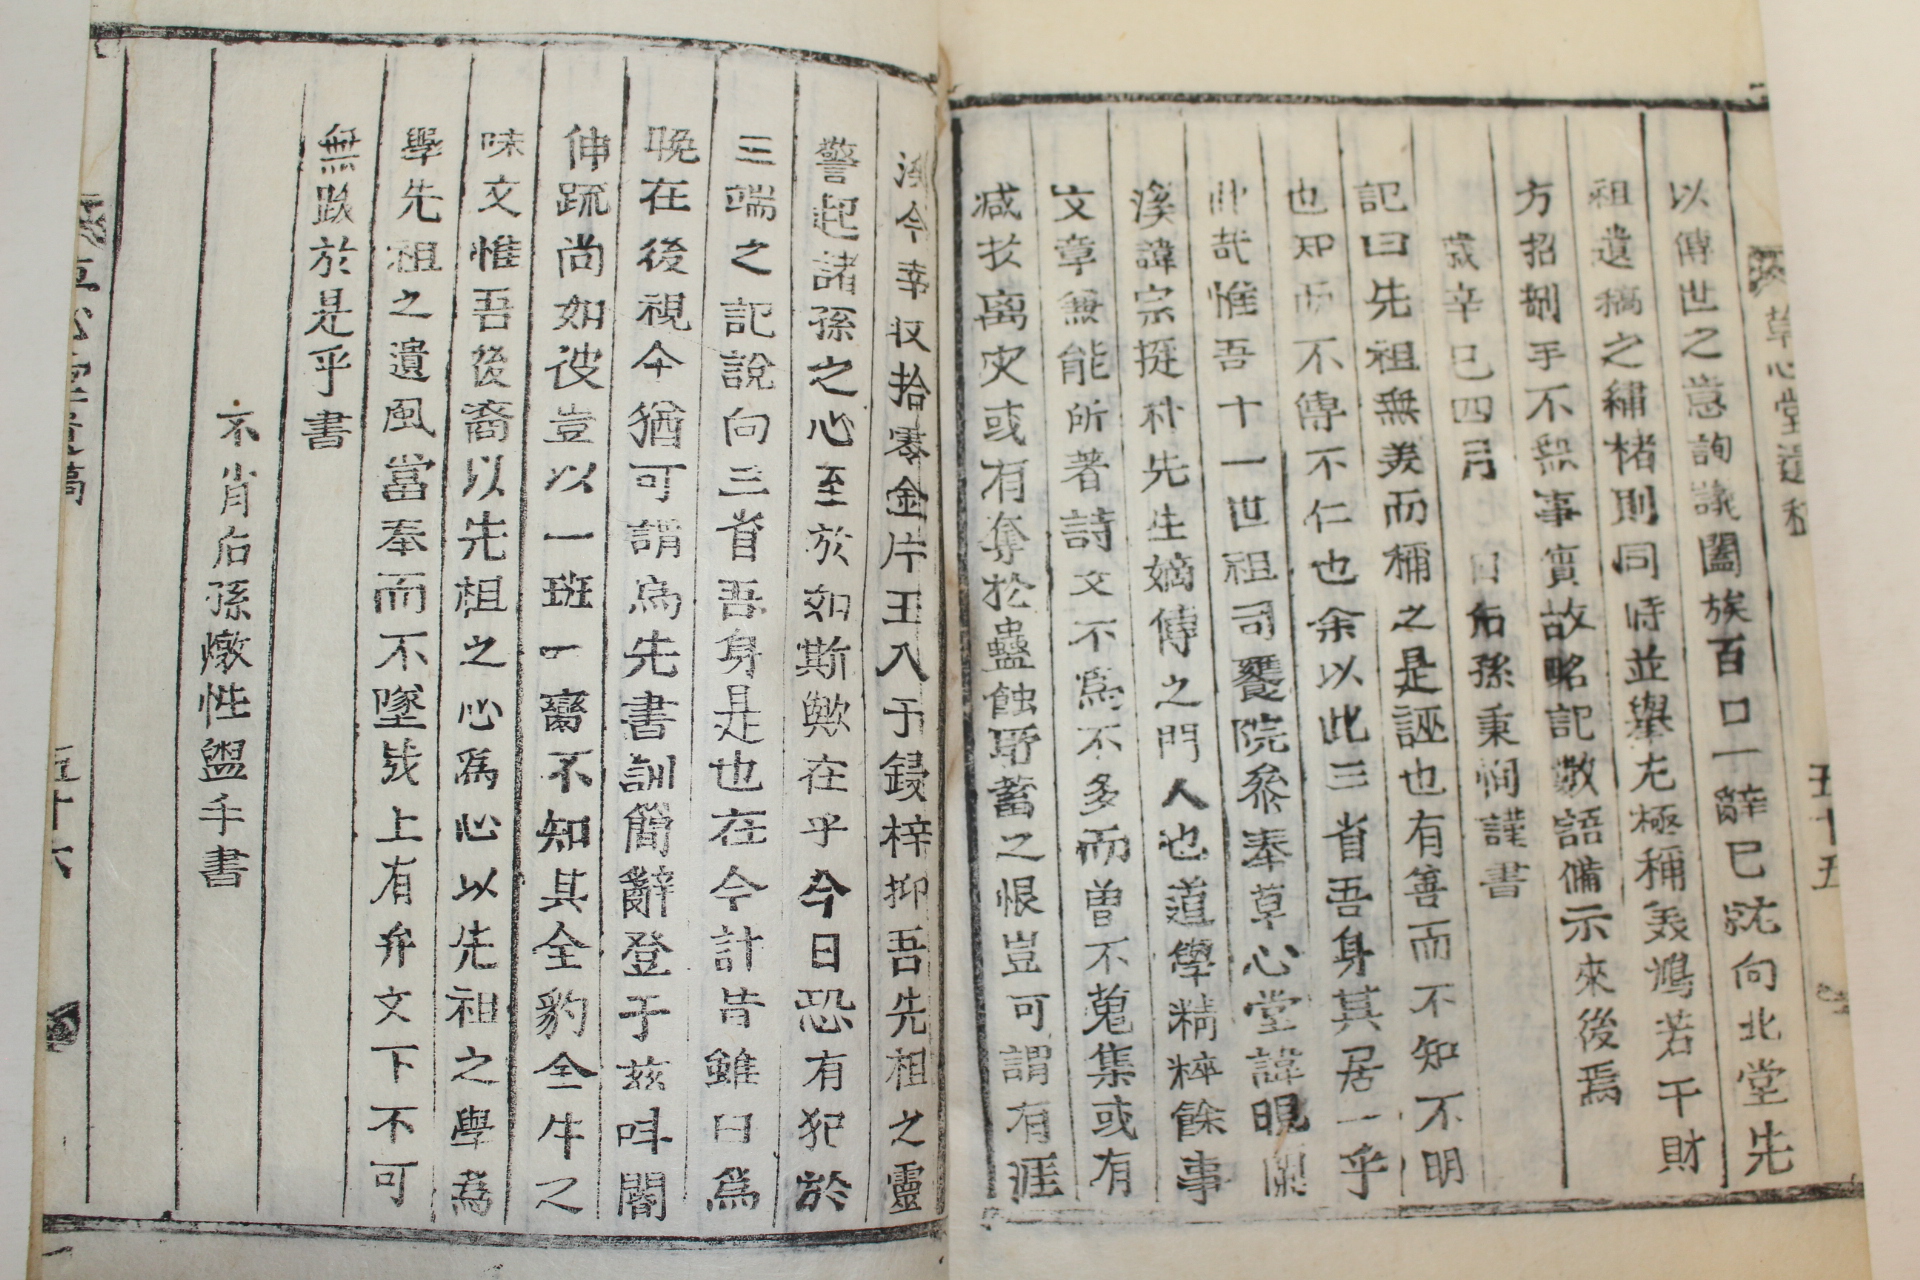 草心堂遺稿
五十五
以傳世之意詢議闔族百口一辭已沈向北堂先
祖遺稿之繡楮則同時並擧尤極稱美鴻若干財
方招剞手不無事實故略記數語備示來後焉
歲辛巳四月 日后孫秉恂謹書
記曰先祖無美而稱之是誣也有善而不知不明
也知而不傳不仁也余以此三省吾身其居一乎
此哉惟吾十一世祖司饔院參奉草心堂諱晛閑
溪諱宗挺朴先生嫡傳之門人也道學精粹餘事
文章無能所著詩文不爲不多而曾不蒐集或有
灾或有奪於蠹蝕所蓄之恨豈可謂有涯
今幸收拾零金片玉入于鋟梓抑吾先祖之靈
警起諸孫之心至於如斯歟在乎今日恐有犯於
三端之記說向三省吾身是也在今計昔雖曰爲
晩在後視今猶可謂爲先書訓簡辭登于玆叫閽
伸疏尚如彼豈以一班一臠不知其全豹全牛之
味文惟吾後裔以先祖之心爲心以先祖之學爲
學先祖之遺風當奉而不墜哉上有弁文下不可
無跋於是乎書
不肖后孫燉性盥手書
草心堂遺稿
五十六